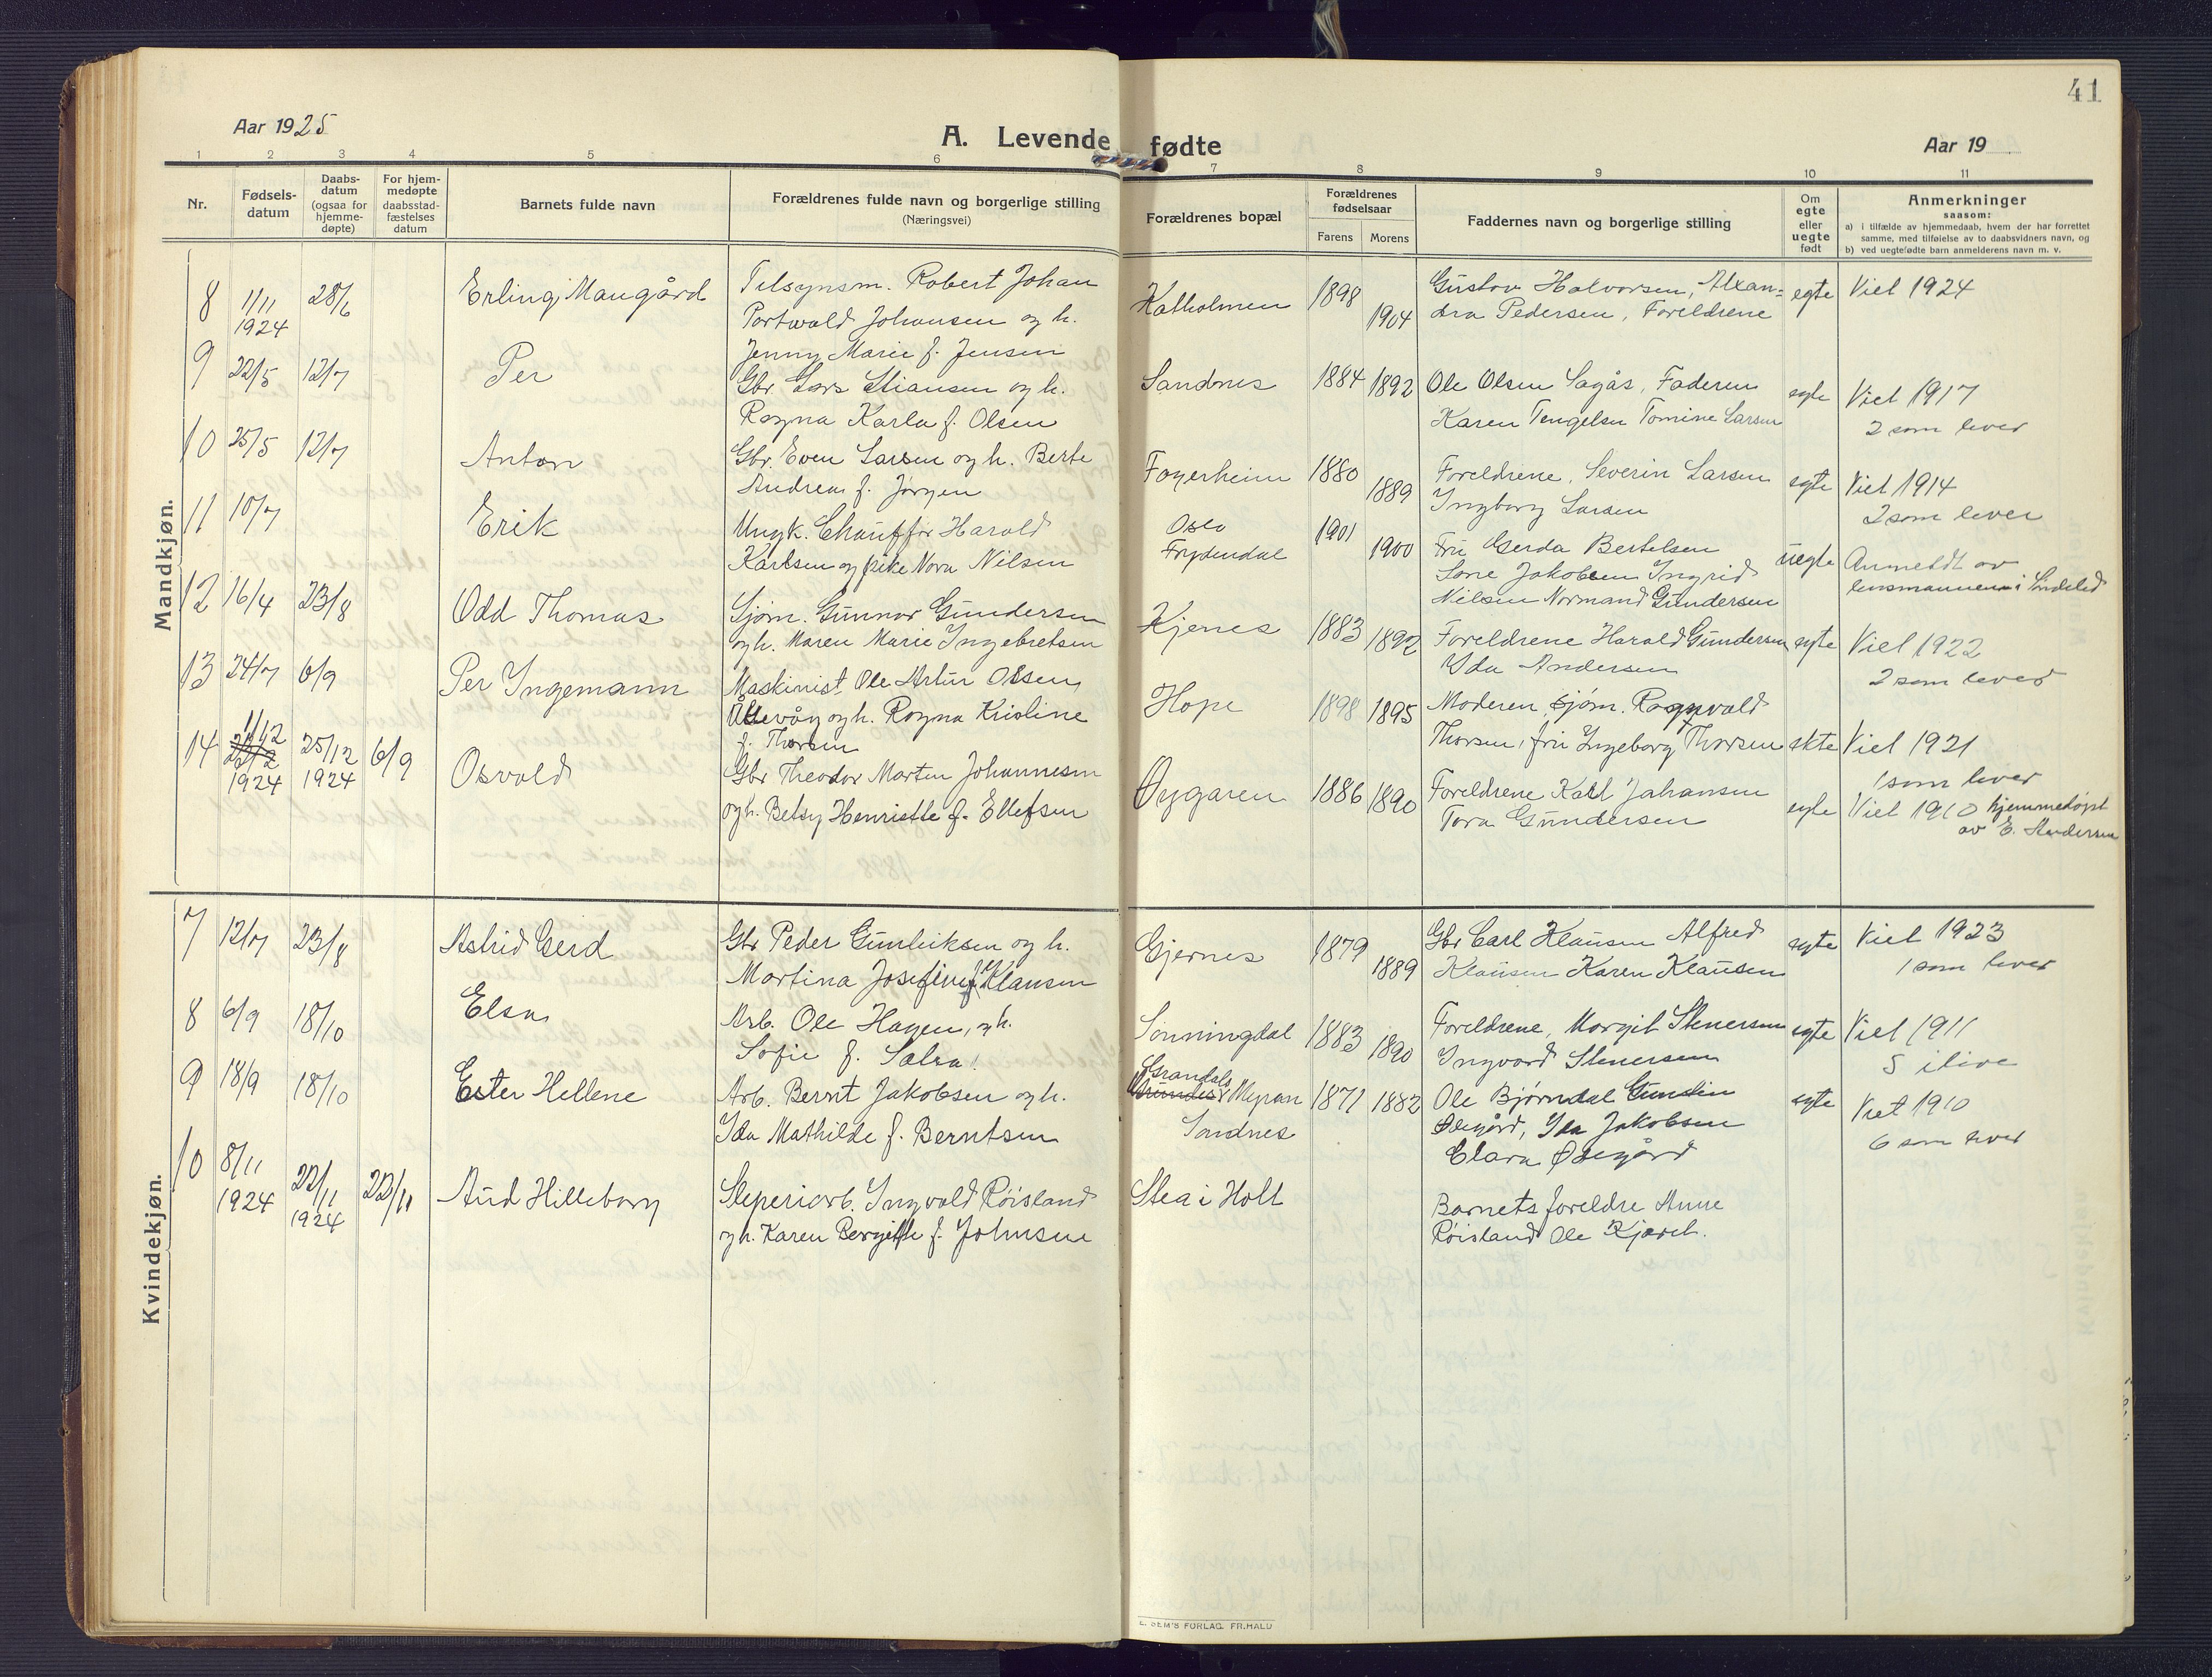 41
Aar 1925
A. Levende fødte
Aar 19
1 2 3 4 5 6 7 8 9 10 11
Nr.
Fødsels-
datum
Daabs-
datum
(ogsaa for
hjemme-
døpte)
For hjem-
medøpte
daabsstad-
fæstelses
datum
Barnets fulde navn
Forældrenes fulde navn og borgerlige stilling
(Næringsvei)
Forældrenes bopæl
Forældrenes
fødselsaar
Farens Morens
Faddernes navn og borgerlige stilling
Om
egte
eller
uegte
født
Anmerkninger
saasom:
a) i tilfælde av hjemmedaab, hvem der har forrettet
samme, med tilføielse av to daabsvidners navn, og
b) ved uegtefødte barn anmelderens navn m. v.
Mandkjøn.
8 1/11 1924 28/6 Erling Maugård
Tilsynsm. Robert Johan
Portwald Johansen og h.
Jenny Marie f. Jensen
Katholmen 1898 1904
Gustav Halvorsen, Alxan=
dra Pedersen, Foreldrene
egte Viet 1924
9 22/5 12/7 Per
Gbr. Lars Stiansen og h.
Ragna Karla f. Olsen
Sandnes 1884 1892
Ole Olsen Sagås, Faderen
Karen Tengelsen Tomine Larsen
egte Viet 1917
2 som lever
10 25/5 12/7 Anton
Gbr. Even Larsen og h. Berte
Andrea f. Jørgen
Fagerheim 1880 1889
Foreldrene, Severin Larsen
Ingborg Larsen
egte Viet 1914
2 som lever
11 10/7 Erik
Ungk. Chauffør Harald
Karlsen og pike Nora Nilsen
Oslo
Frydendal 1901 1900
Fru Gerda Bertelsen
Lone Jakobsen Ingrid
Nilsen Normand Gundersen
uegte Anmeldt av
lensmannen i Søndeled
12 16/4 23/8 Odd Thomas
Sjøm. Gunnar Gundersen
og h. Maren Marie Ingebretsen
Kjenes 1883 1892
Foreldrene Harald Gundersen
Ida Andersen
egte Viet 1922
2 som lever
13 24/7 6/9 Per Ingemann
Maskinist Ole Artur Olsen
Ullevåg og h. Ragna Kristine
f. Thorsen
Hope 1898 1895
Moderen, sjøm. Ragnvald
Thorsen, fru Ingeborg Thorsen
ekte Viet 1921
1 som lever
14 11/12 1924 25/12 1924 6/9 Osvald
Gbr Theodor Martin Johannesen
og h. Betsy Henriette f. Ellefsen
Øygaren 1886 1890
Foreldrene Karl Johansen
Tora Gundersen
egte Viet 1910 hjemmedøpt
av E.
Kvindekjøn.
7 12/7 23/8 Astrid Gerd
Gbr Peder Gunleiksen og h.
Martina Josefine f. Klausen
Gjernes 1879 1889
Gbr Carl Klausen Alfred
Klausen Karen Klausen
egte Viet 1923
1 som lever
8 6/9 18/10 Elsa
Arb. Ole Hagen, og h.
Sofie f.
Sønningdal 1883 1890
Foreldrene, Margit Stenersen
Ingvard Stenersen
egte Viet 1911
5 ilive
9 18/9 18/10 Ester Hellene
Arb. Bernt Jakobsen og h.
Ida Mathilde f. Berntsen
Grandals
Myran
Sandnes 1871 1882
Ole Bjørndal Gunstein
Ødegård, Ida Jakobsen
Clara Ødegård
egte Viet 1910
6 som lever
10 8/11 1924 22/11 1924 22/11 Aud Hilleborg
Sleperiarb. Ingvald Røisland
og h. Karen Bergitte f. Johnsen
Stea i Holt
Barnets foreldre Anne
Røisland Ole
E. SEM'S FORLAG. FR.HALD